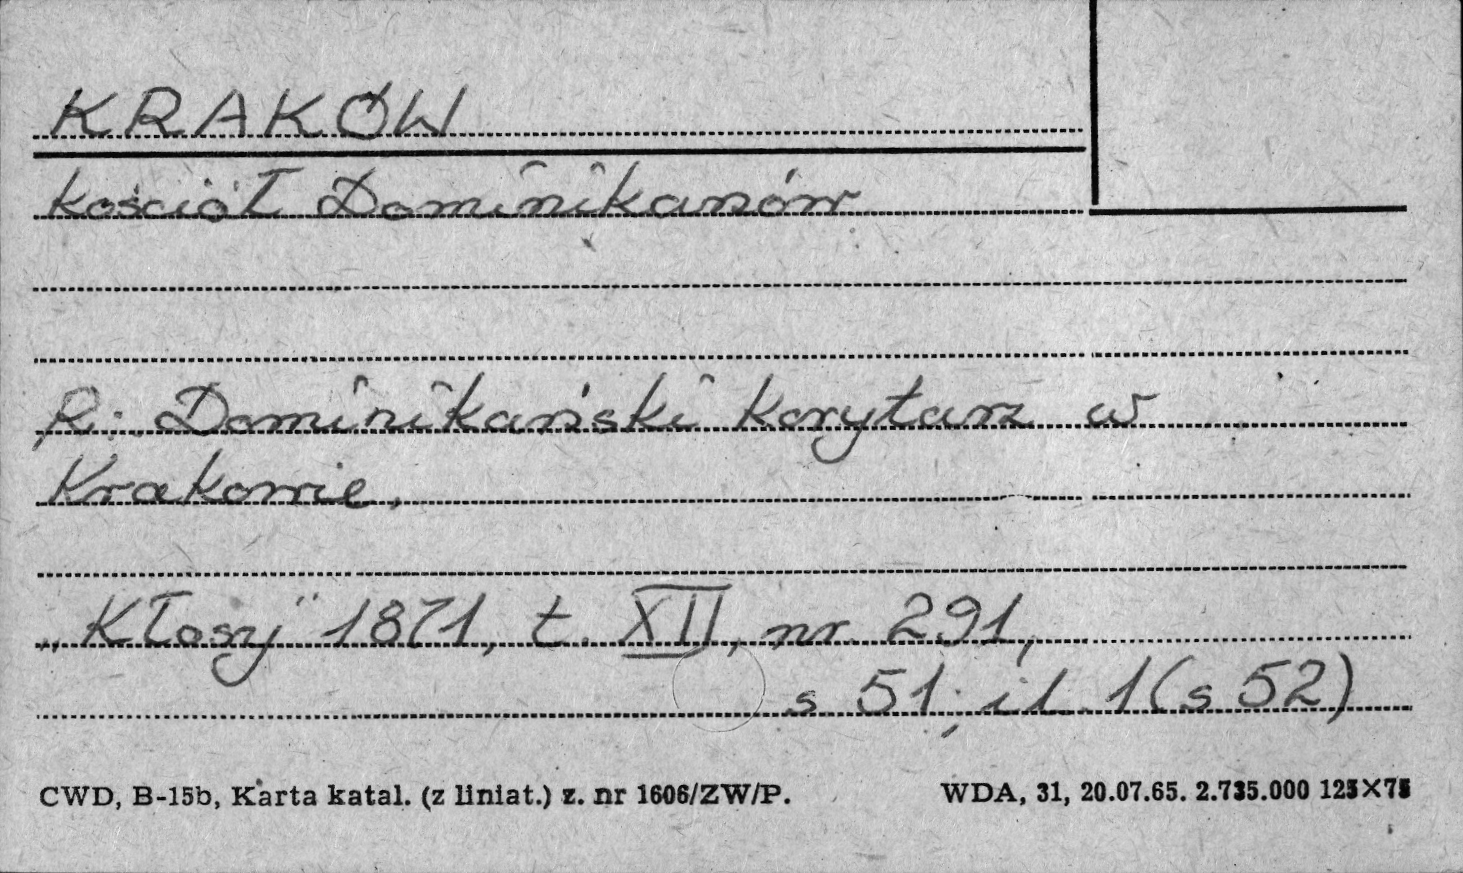 KRAKÓW
kościół Dominikanów
R: Dominikański korytarz w
Krakowie,
„Kłosy" 1871, t. XII, nr 291,
s 51; il. 1 (s 52)
CWD, B-15b, Karta katal. (z liniat.) z. nr 1606/ZW/P. WDA, 31, 20.07.65. 2.735.000 125×75